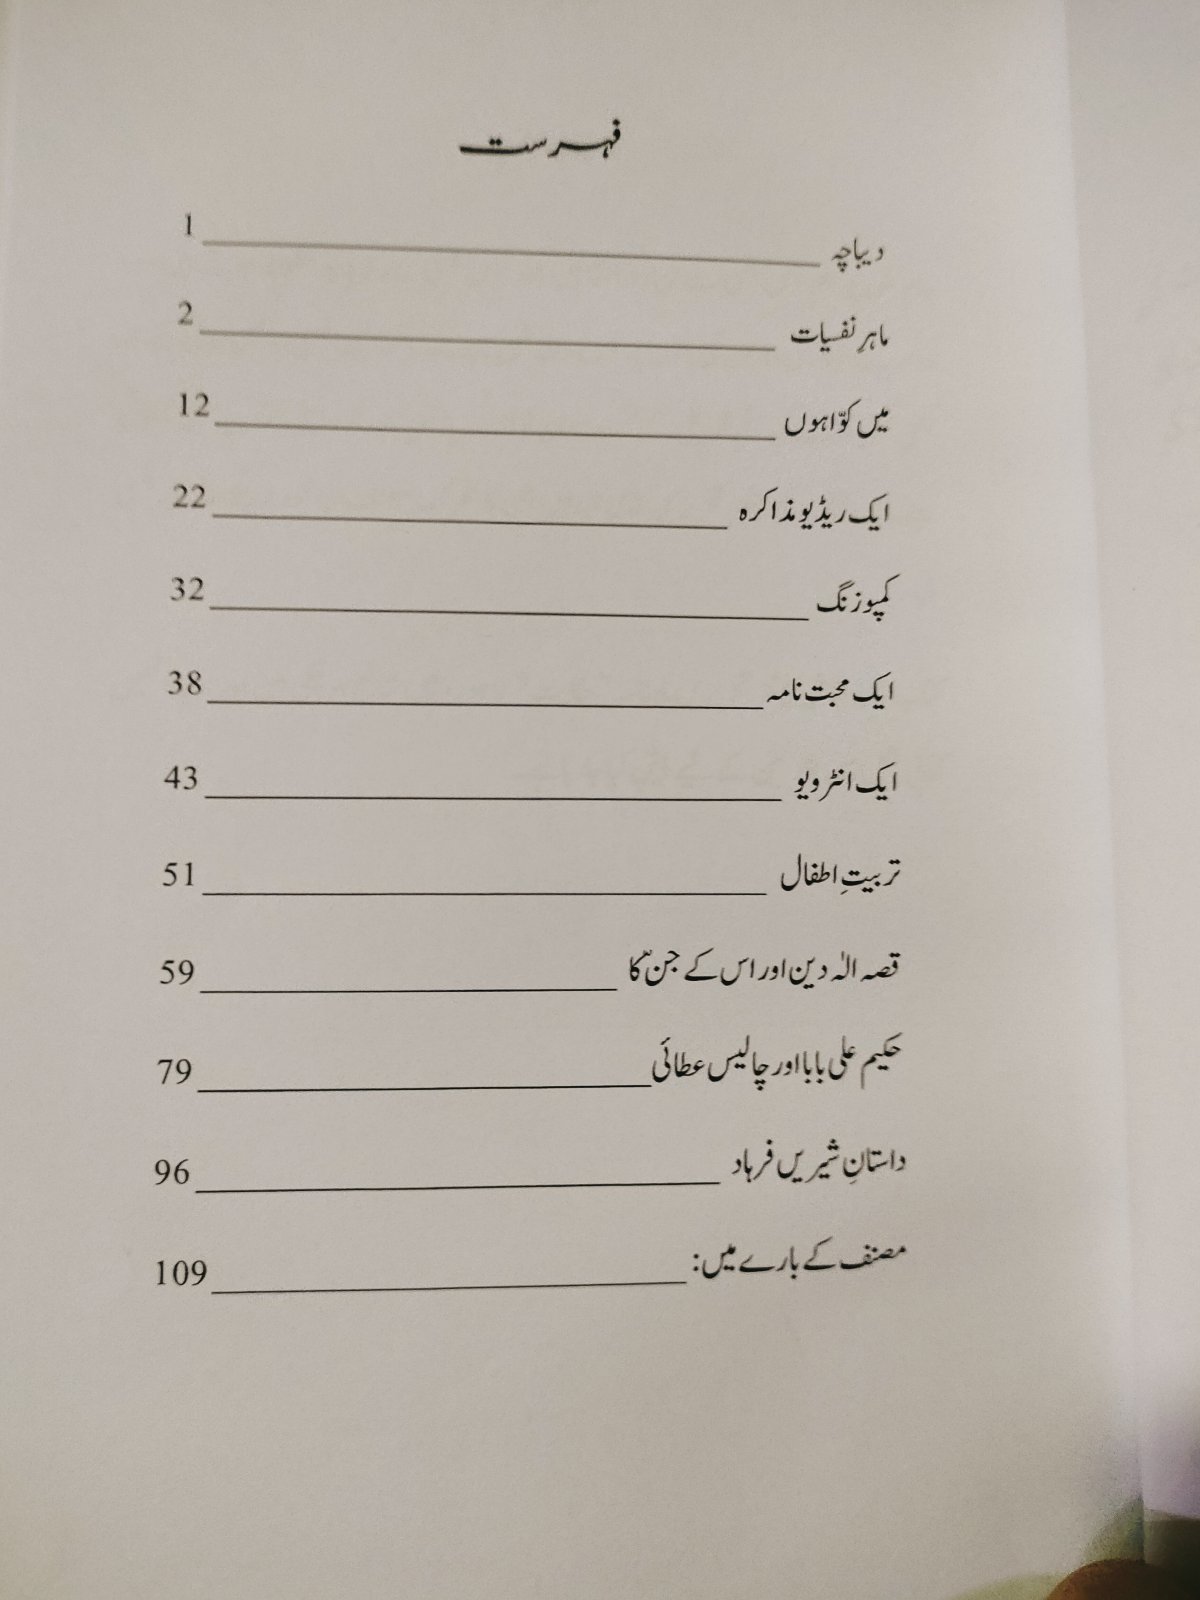 فہرست
دیباچہ 1
ماہرِ نفسیات 2
میں کوّا ہوں 12
ایک ریڈیو مذاکرہ 22
کمپوزنگ 32
ایک محبت نامہ 38
ایک انٹرویو 43
تربیتِ اطفال 51
قصہ الٰہ دین اور اس کے جنّ کا 59
حکیم علی بابا اور چالیس عطائی 79
داستانِ شیریں فرہاد 96
مصنف کے بارے میں: 109